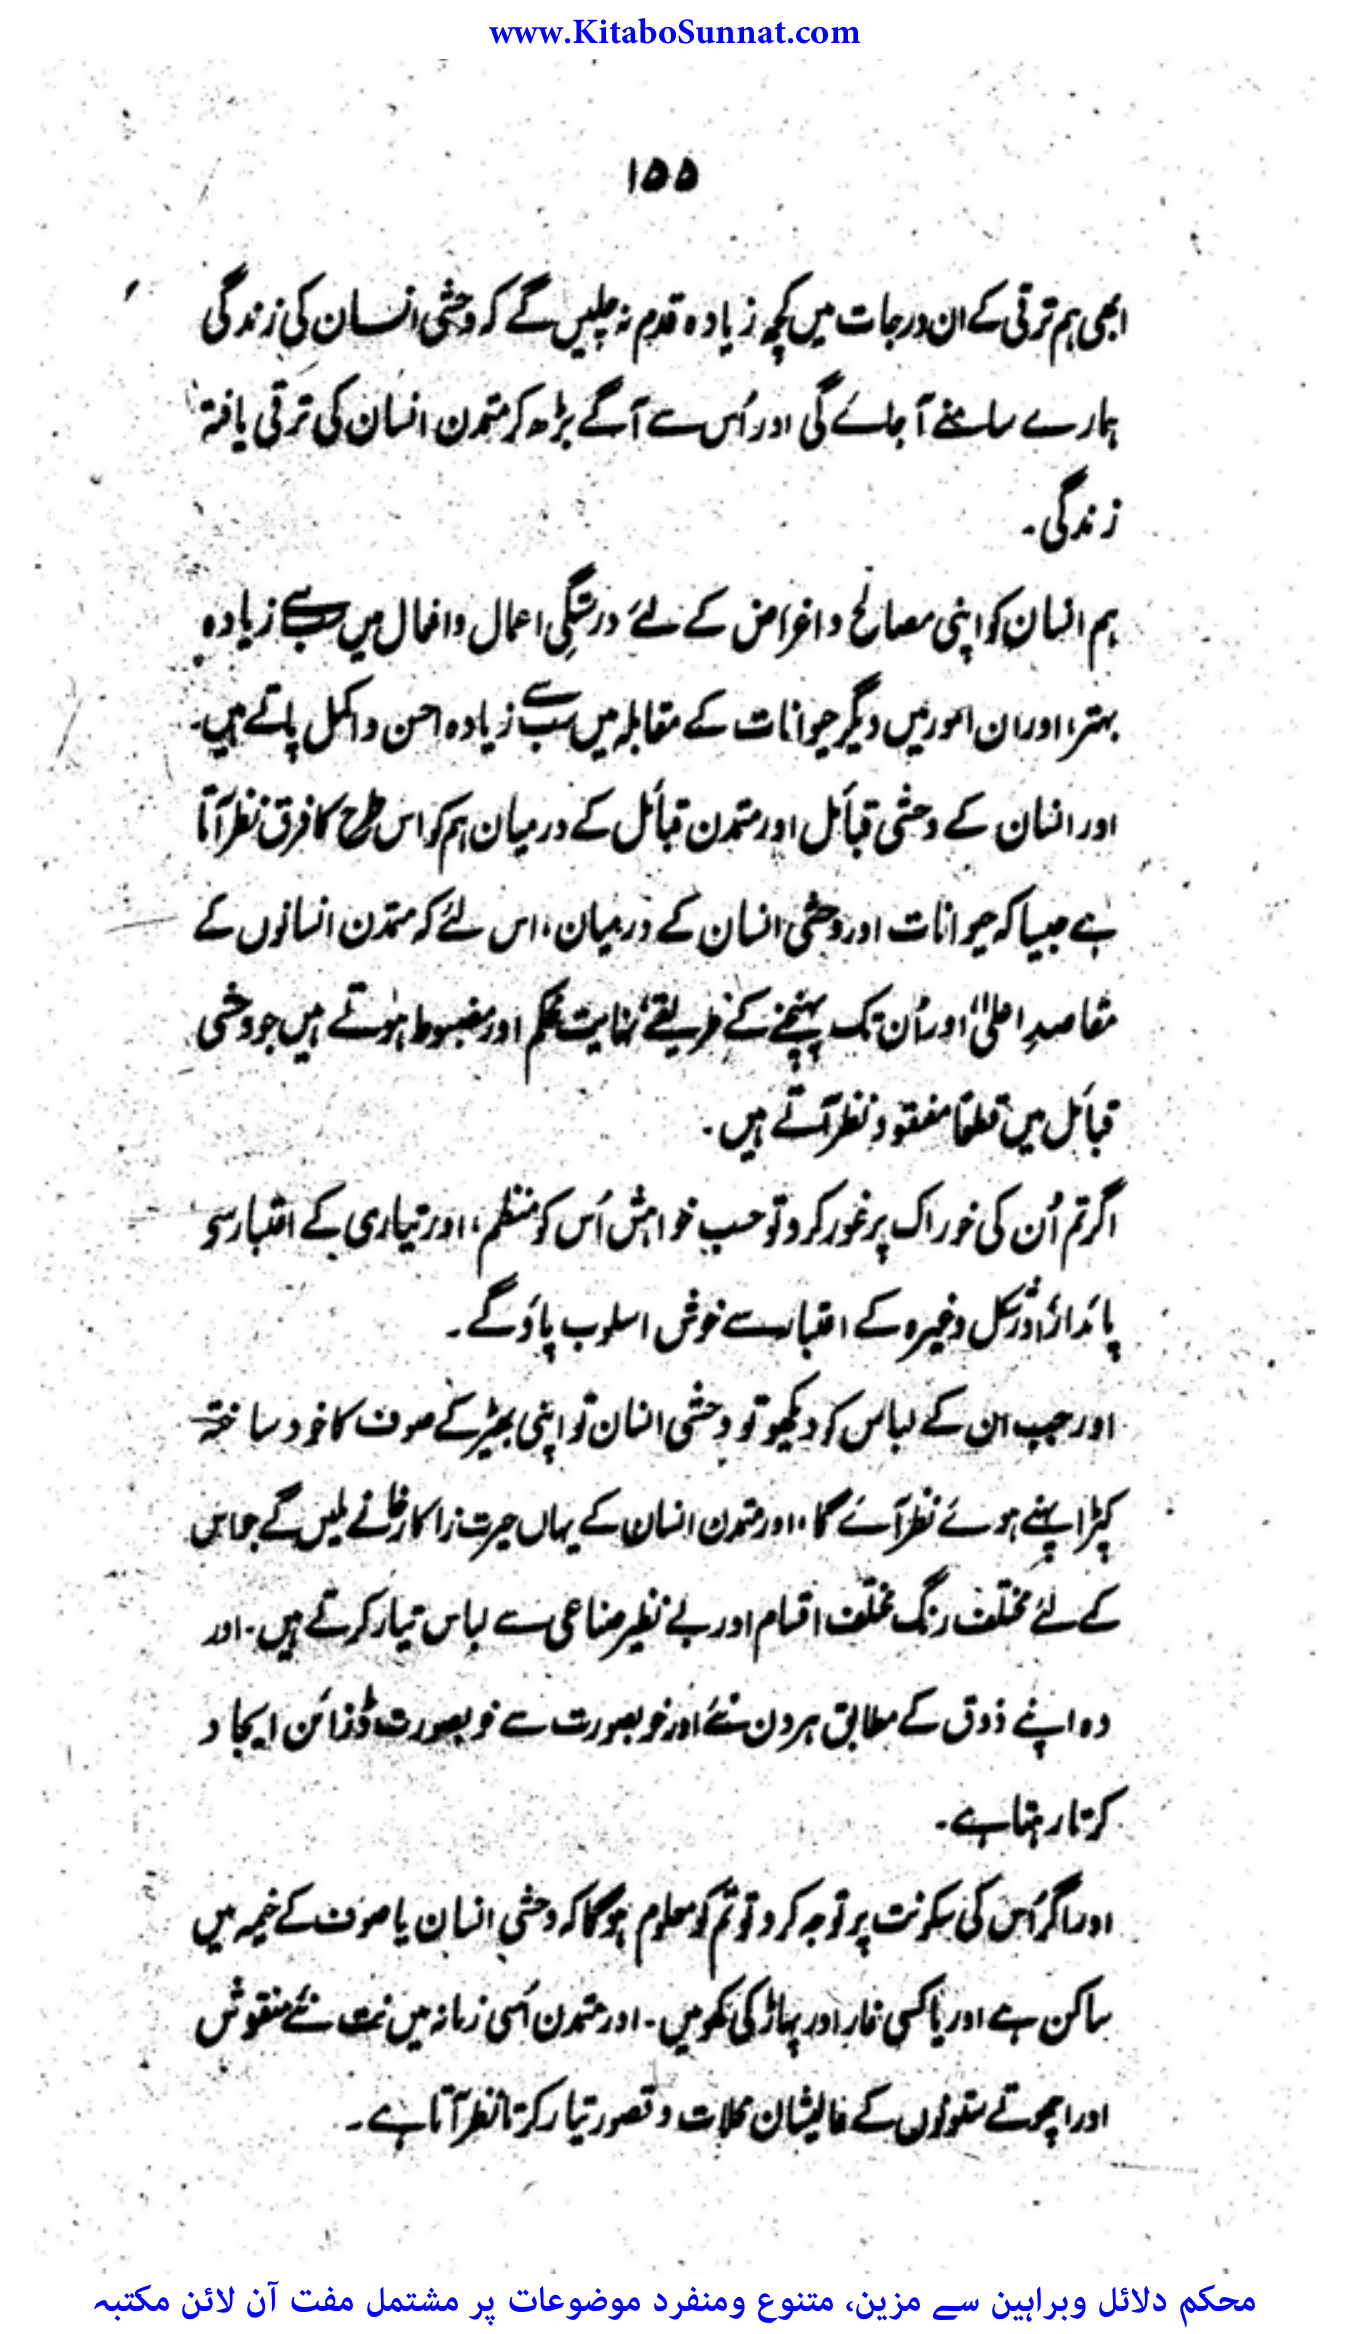 www.KitaboSunnat.com
۱۵۵
ابھی ہم ترقی کے ان درجات میں کچھ زیادہ قدم نہ چلیں گے کہ وحشی انسان کی زندگی
ہمارے سامنے آ جائے گی اور اُس سے آگے بڑھ کر متمدن انسان کی ترقی یافتہ
زندگی۔
ہم انسان کو اپنی مصالح و اغراض کے لئے درستگیِ اعمال و افعال میں سب سے زیادہ
بہتر، اور ان امور میں دیگر حیوانات کے مقابلہ میں سب سے زیادہ احسن و اکمل پاتے ہیں۔
اور انسان کے وحشی قبائل اور متمدن قبائل کے درمیان ہم کو اس طرح کا فرق نظر آتا
ہے جیسا کہ حیوانات اور وحشی انسان کے درمیان، اس لئے کہ متمدن انسانوں کے
مقاصدِ اعلیٰ اور اُن تک پہنچنے کے طریقے نہایت محکم اور مضبوط ہوتے ہیں جو وحشی
قبائل میں قطعًا مفقود نظر آتے ہیں۔
اگر تم اُن کی خوراک پر غور کرو تو حسبِ خواہش اُس کو منظم، اور تیاری کے اعتبار سے
پائدار، اور شکل وغیرہ کے اعتبار سے خوش اسلوب پاؤ گے۔
اور جب ان کے لباس کو دیکھو تو وحشی انسان تو اپنی بھیڑ کے صوف کا خود ساختہ
کپڑا پہنے ہوئے نظر آئے گا، اور متمدن انسان کے یہاں حیرت زا کارخانے ملیں گے جو اس
کے لئے مختلف رنگ مختلف اقسام اور بے نظیر صناعی سے لباس تیار کرتے ہیں۔ اور
وہ اپنے ذوق کے مطابق ہر دن نئے اور خوبصورت سے خوبصورت ڈزائن ایجاد
کرتا رہتا ہے۔
اور اگر اُس کی سکونت پر توجہ کرو تو تم کو معلوم ہوگا کہ وحشی انسان یا صوف کے خیمہ میں
ساکن ہے اور یا کسی غار اور پہاڑ کی کھو میں۔ اور متمدن اُسی زمانہ میں نت نئے منقوش
اور اچھوتے ستونوں کے عالیشان محلات و قصور تیار کرتا نظر آتا ہے۔
محکم دلائل وبراہین سے مزین، متنوع ومنفرد موضوعات پر مشتمل مفت آن لائن مکتبہ